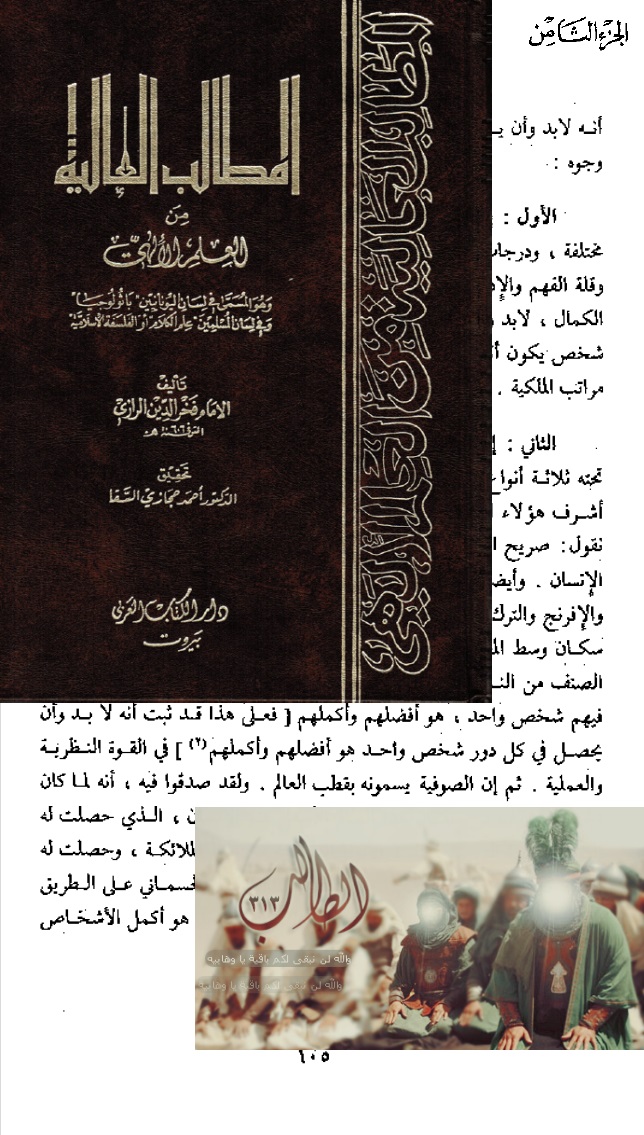 الجزء الثامن
المطالب العالية
من
العلم الإلهي
وهو المسمى في لسان اليونانيين "باثولوجيا"
وفي لسان المسلمين "علم الكلام أو الفلسفة الإسلامية"
تأليف
الإمام فخر الدين الرازي
تحقيق
الدكتور أحمد حجازي السقا
دار الكتاب العربي
بيروت
المطالب العالية من العلم الإلهي
أنه لابد وأن
وجوه :
الأول :
مختلفة ، ودرجات
وقلة الفهم
الكمال ، لابد
شخص يكون
مراتب الملكية .
الثاني :
تحته ثلاثة أنواع
أشرف هؤلاء
نقول: صريح
الإنسان . وأيضاً
والإفرنج والترك
سكان وسط
الصنف من
فيهم شخص واحد ، هو أفضلهم وأكملهم [ فعلى هذا قد ثبت أنه لا بد وأن
يحصل في كل دور شخص واحد هو أفضلهم وأكملهم(٢) ] في القوة النظرية
والعملية . ثم إن الصوفية يسمونه بقطب العالم . ولقد صدقوا فيه ، أنه لما كان
، الذي حصلت له
، وحصلت له
على الطريق
هو أكمل الأشخاص
الطالب ٣١٣
والله لن تبقى لكم باقية يا وهابية
والله لن تبقى لكم باقية يا وهابية
١٠٥